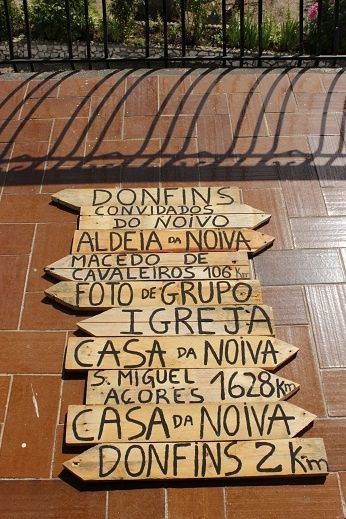 DONFINS
CONVIDADOS
DO NOIVO
ALDEIA DA NOIVA
MACEDO DE
CAVALEIROS 106 Km
FOTO DE GRUPO
IGREJA
CASA DA NOIVA
S. MIGUEL
AÇORES 1628 Km
CASA DA NOIVA
DONFINS 2 Km